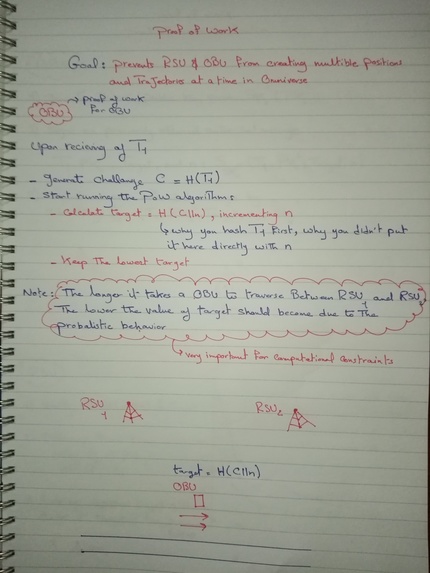 Proof of Work
Goal: prevents RSU & OBU from creating multiple positions
and Trajectories at a time in Omniverse
OBU → proof of work
for OBU
Upon reciving of T1
- generate challange C = H(T1)
- Start running the PoW algorithm:
- Calculate target = H(C||n), incrementing n
↳ why you hash T1 first, why you didn't put
it here directly with n
- Keep the lowest target
Note: The longer it takes a OBU to traverse Between RSU1 and RSU2
The lower the value of target should become due to The
probalistic behavior
→ very important for computational constraints
RSU1
RSU2
target = H(C||n)
OBU